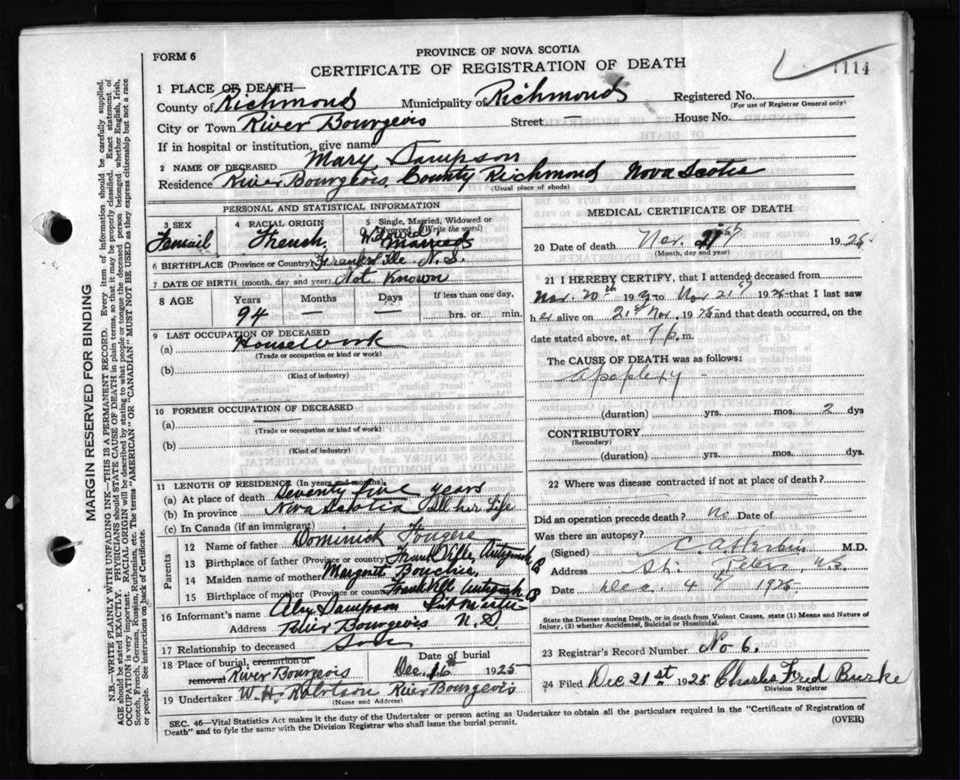 FORM 6
PROVINCE OF NOVA SCOTIA
CERTIFICATE OF REGISTRATION OF DEATH
1114
1 PLACE OF DEATH—
County of Richmond Municipality of Richmond Registered No.
(For use of Registrar General only)
City or Town River Bourgeois Street — House No.
If in hospital or institution, give name
2 NAME OF DECEASED Mary Sampson
Residence River Bourgeois, County Richmond Nova Scotia
(Usual place of abode)
PERSONAL AND STATISTICAL INFORMATION
3 SEX Femail
4 RACIAL ORIGIN French
5 Single, Married, Widowed or Divorced (Write the word) Widowed Married
6 BIRTHPLACE (Province or Country) Frankville N.S.
7 DATE OF BIRTH (month, day and year) Not Known
8 AGE Years 94 Months — Days — If less than one day, hrs. or min.
9 LAST OCCUPATION OF DECEASED
(a) Housework
(Trade or occupation or kind or work)
(b)
(Kind of industry)
10 FORMER OCCUPATION OF DECEASED
(a) —
(Trade or occupation or kind or work)
(b)
(Kind of industry)
11 LENGTH OF RESIDENCE (In years and months).
(a) At place of death Seventy five years
(b) In province Nova Scotia All her Life
(c) In Canada (if an immigrant)
Parents
12 Name of father Dominick Fougere
13 Birthplace of father (Province or country) Frankville Antigonish
14 Maiden name of mother Margaret Bouchie
15 Birthplace of mother (Province or country) Frankville Antigonish
16 Informant's name Sampson
Address River Bourgeois N.S
17 Relationship to deceased Son
18 Place of burial, cremation or removal River Bourgeois Date of burial Dec. 1925
19 Undertaker W. H. Robertson River Bourgeois
(Name and Address)
MEDICAL CERTIFICATE OF DEATH
20 Date of death Nov. 21st 1925
(Month, day and year)
21 I HEREBY CERTIFY, that I attended deceased from
Nov. 20th 192 to Nov 21st 1925 that I last saw
her alive on 21st Nov. 1925 and that death occurred, on the
date stated above, at 7 p. m.
The CAUSE OF DEATH was as follows:
Apoplexy -
(duration) yrs. mos. 2 dys
CONTRIBUTORY
(Secondary)
(duration) yrs. mos. dys
22 Where was disease contracted if not at place of death?
Did an operation precede death? No Date of —
Was there an autopsy? —
(Signed) M.D.
Address St. Peters N.S.
Date Dec. 4th 1925
State the Disease causing Death, or in death from Violent Causes, state (1) Means and Nature of Injury, (2) whether Accidental, Suicidal or Homicidal.
23 Registrar's Record Number No 6.
24 Filed Dec 21st 1925 Charles Fred Burke
Division Registrar
SEC. 46—Vital Statistics Act makes it the duty of the Undertaker or person acting as Undertaker to obtain all the particulars required in the "Certificate of Registration of
Death" and to file the same with the Division Registrar who shall issue the burial permit.
(OVER)
MARGIN RESERVED FOR BINDING
N.B.—WRITE PLAINLY WITH UNFADING INK—THIS IS A PERMANENT RECORD. Every item of information should be carefully supplied.
AGE should be stated EXACTLY. PHYSICIANS should STATE CAUSE OF DEATH in plain terms, so that it may be properly classified. Exact statement of
OCCUPATION is very important. RACIAL ORIGIN will be described by stating to what people or tongue the deceased person belonged whether English, Irish,
Scotch, French, German, Russian, Ruthenian, etc. The terms "AMERICAN" OR "CANADIAN" MUST NOT BE USED as they express citizenship but not a race
or people. See instructions on back of Certificate.